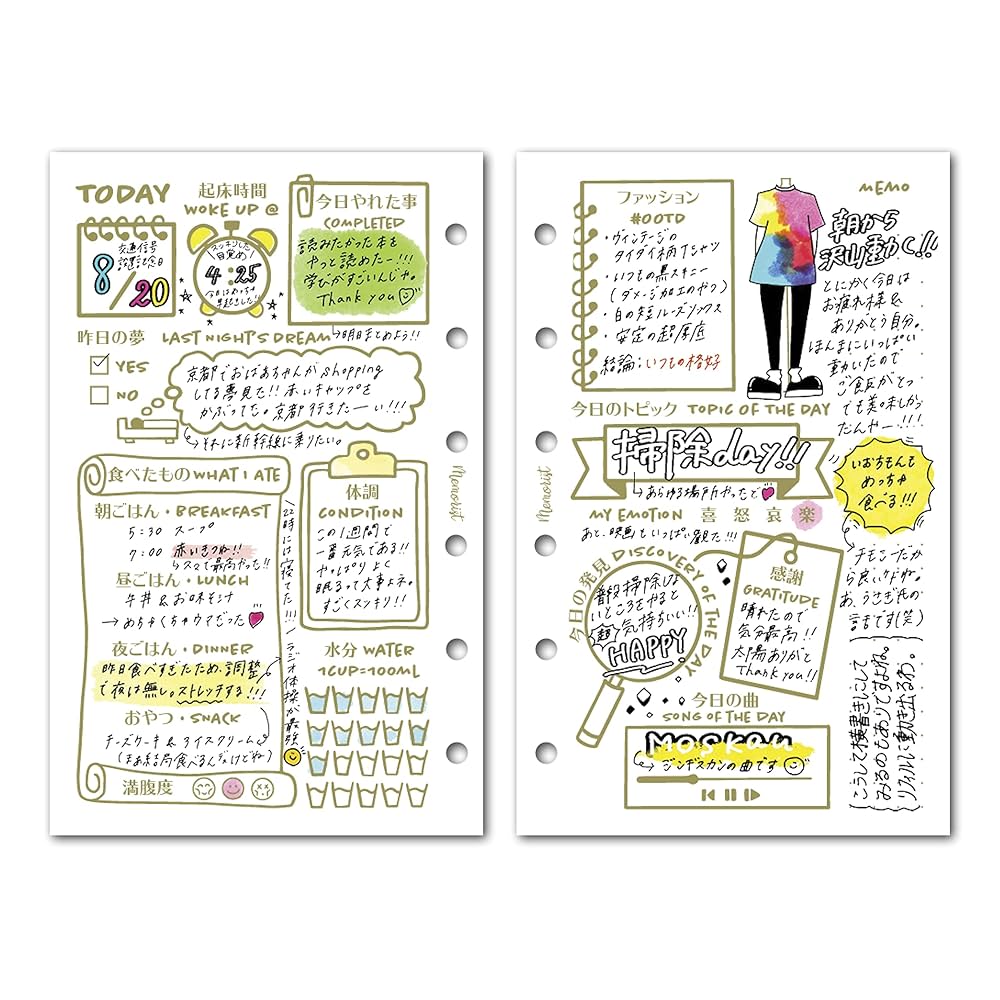 TODAY
交通信号
設置記念日
8/20
起床時間
WOKE UP @
スッキリした
目覚め!
4:25
今日はめっちゃ
早起きした!!
今日やれた事
COMPLETED
読みたかった本を
やっと読めたー!!!
学びがすごいんじゃ。
Thank you
→明日まとめよう!!
昨日の夢 LAST NIGHT'S DREAM
YES
NO
京都でおばあちゃんがshopping
してる夢見た!! 赤いキャップを
かぶってた。京都行きたーい!!!
→それに新幹線に乗りたい。
食べたもの WHAT I ATE
朝ごはん・BREAKFAST
5:30 スープ
7:00 赤いきつね!!
↳スマで最高やった!!
昼ごはん・LUNCH
牛丼&お味そ汁
→めちゃくちゃウマだった
夜ごはん・DINNER
昨日食べすぎたため、調整
で夜は無し。ストレッチする!!!
おやつ・SNACK
チーズケーキ&アイスクリーム
(まあ結局食べるんだけどね)
満腹度
22時には寝てた!!!
ラジオ体操が最強
体調
CONDITION
この1週間で
一番元気である!!
やっぱりよく
眠るって大事よネ。
すごくスッキリ!!
水分 WATER
1CUP=100ML
Memorist
Memorist
ファッション
#OOTD
・ヴィンテージの
タイダイ柄Tシャツ
・いつもの黒スキニー
(ダメージ加工のやつ)
・白の短ルーズソックス
・安定の超厚底
結論:いつもの格好
MEMO
朝から
沢山動く!!
とにかく今日は
お疲れ様&
ありがとう自分。
ほんまにいっぱい
動いたので
ご飯がとっ
ても美味しかっ
たんやー!!!
いおちもんも
めっちゃ
食べる!!!
今日のトピック TOPIC OF THE DAY
掃除day!!
→あらゆる場所やったで
MY EMOTION 喜 怒 哀 楽
あと、映画もいっぱい観た!!!
今日の発見 DISCOVERY OF THE DAY
普段掃除しな
いところをやると
超気持ちいい!!
HAPPY
感謝
GRATITUDE
晴れたので
気分最高!!
太陽ありがと
Thank you!!
今日の曲
SONG OF THE DAY
MOSKAU
→ジンギスカンの曲です
チモシーだか
ら良いけどね。
あ、うさぎ氏の
話です(笑)
こうして横書きにして
みるのもありですよね。
リフィルに動き出るわ。